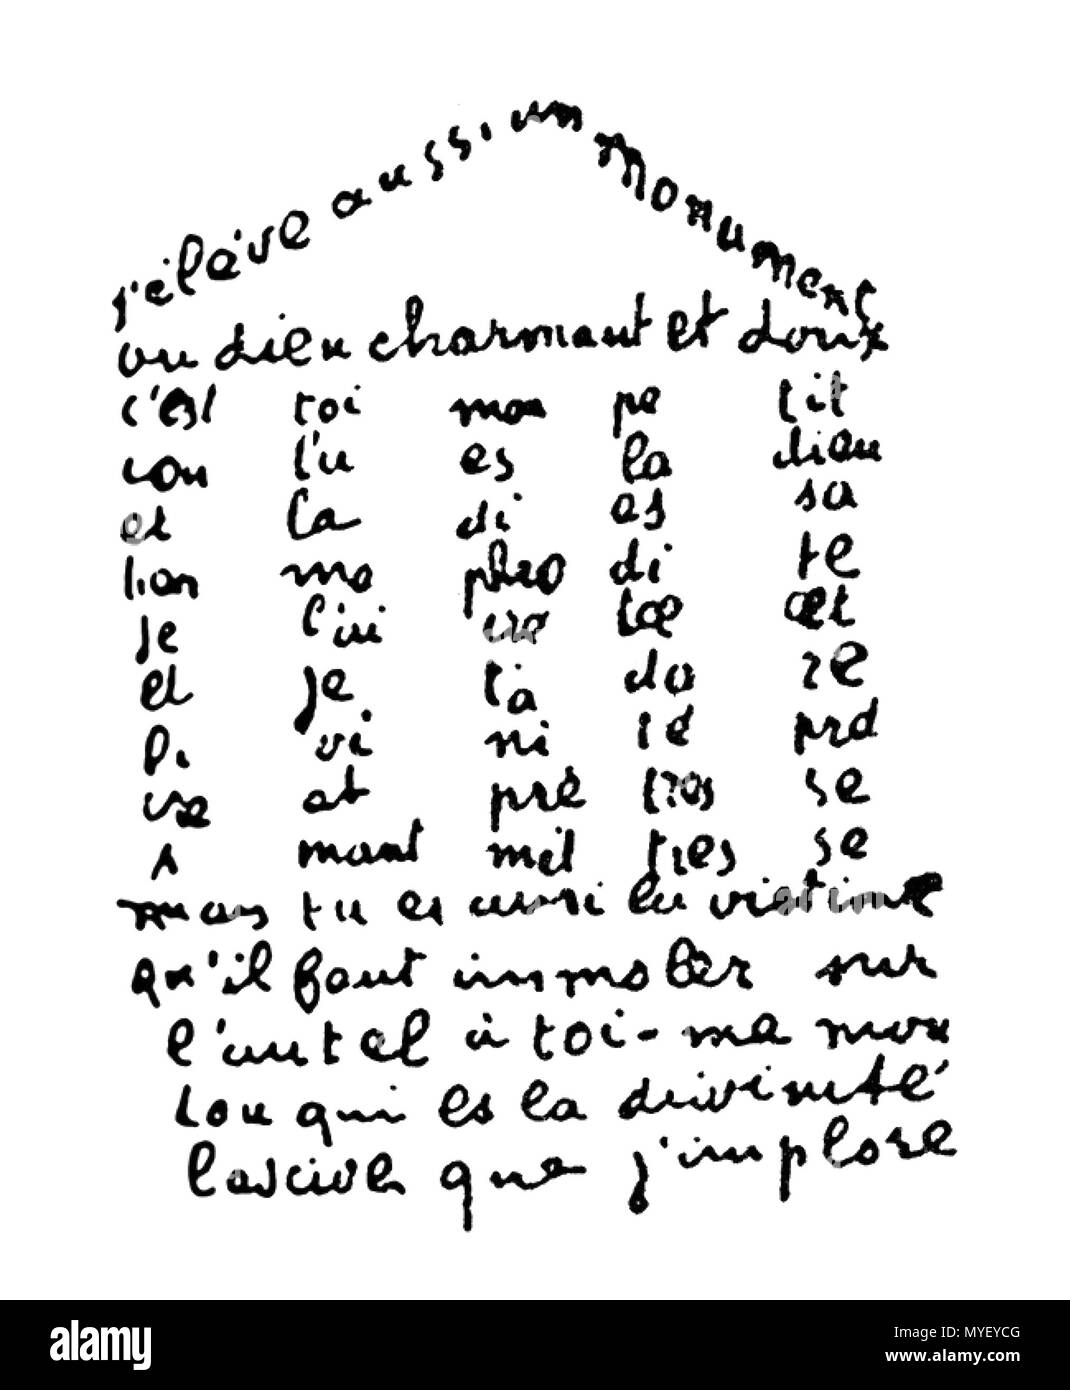 j'élève aussi un monument
au dieu charmant et doux
c'est toi mon pe tit
cou tu es la dieu
et la di es sa
lion ma phro di te
je t'in vo
et je t'a do re
Di vi ni té pro
at prê tres se
A mant mil tres se
mais tu es aussi la victime
qu'il faut immoler sur
l'autel à toi-me mou
Lou qui es la divinité
lascive que j'implore
alamy
Image ID: MYEYCG
www.alamy.com